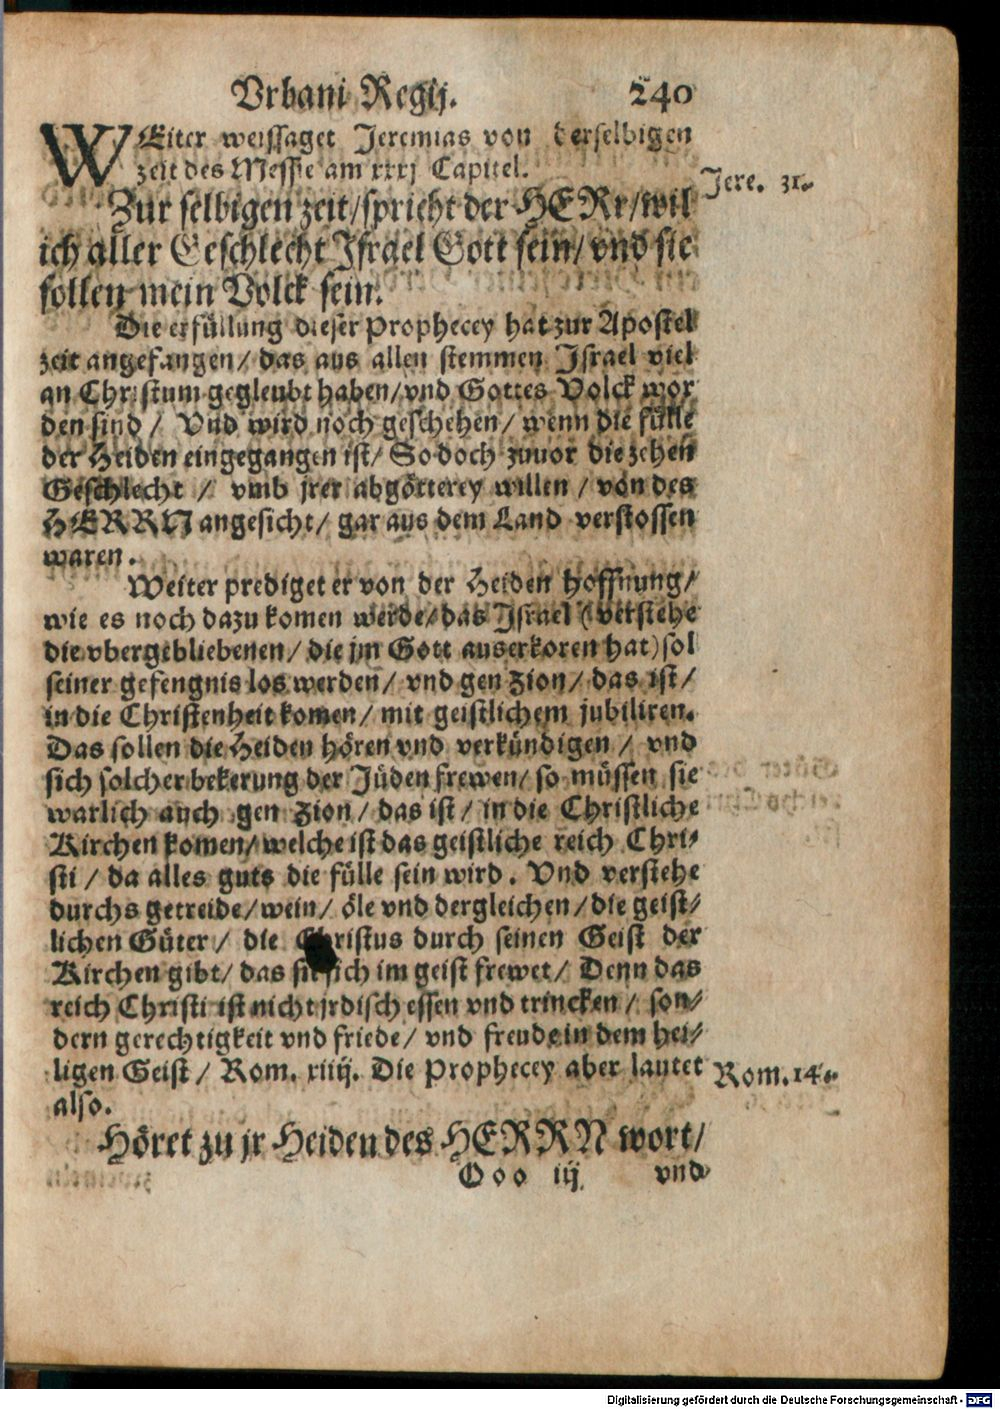 Vrbani Regij. 240
WEiter weissaget Jeremias von derselbigen
zeit des Messie am xxxj Capitel.
Jere. 31.
Zur selbigen zeit/spricht der HERr/wil
ich aller Geschlecht Israel Gott sein/vnd sie
sollen mein Volck sein.
Die erfüllung dieser Prophecey hat zur Apostel
zeit angefangen/ das aus allen stemmen Israel viel
an Christum gegleubt haben/vnd Gottes Volck wor
den sind / Vnd wird noch geschehen/ wenn die fülle
der Heiden eingegangen ist/ So doch zuuor die zehen
Geschlecht / vmb jrer abgötterey willen / von des
HERRN angesicht/ gar aus dem Land verstossen
waren.
Weiter prediget er von der Heiden hoffnung/
wie es noch dazu komen werde/das Israel (verstehe
die vbergebliebenen/ die jm Gott auserkoren hat) sol
seiner gefengnis los werden/ vnd gen Zion/ das ist/
in die Christenheit komen/ mit geistlichem jubiliren.
Das sollen die Heiden hören vnd verkündigen / vnd
sich solcher bekerung der Jüden frewen/ so müssen sie
warlich auch gen Zion/ das ist/ in die Christliche
Kirchen komen/ welche ist das geistliche reich Chri-
sti / da alles guts die fülle sein wird. Vnd verstehe
durchs getreide/wein/ öle vnd dergleichen/die geist-
lichen Güter/ die Christus durch seinen Geist der
Kirchen gibt/ das sie sich im geist frewet/ Denn das
reich Christi ist nicht jrdisch essen vnd trincken/ son-
dern gerechtigkeit vnd friede/ vnd freude in dem hei-
ligen Geist/ Rom. xiiij. Die Prophecey aber lautet
Rom. 14.
also.
Höret zu jr Heiden des HERRN wort/
Ooo iij vnd
Digitalisierung gefördert durch die Deutsche Forschungsgemeinschaft - DFG